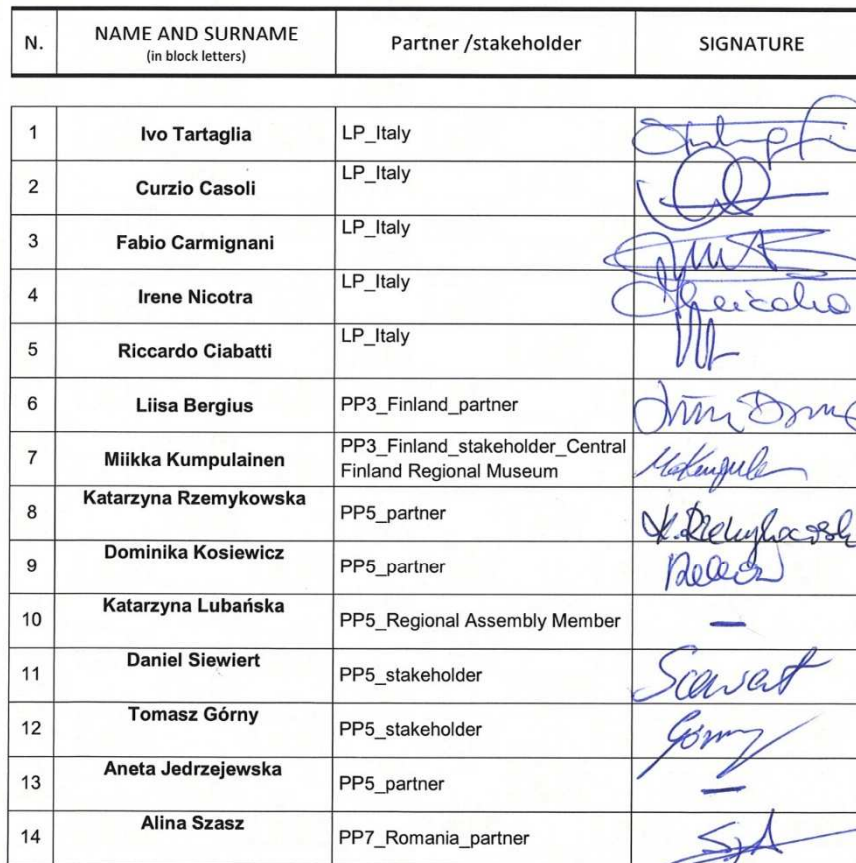 N. NAME AND SURNAME Partner /stakeholder SIGNATURE
(in block letters)
1 Ivo Tartaglia LP_Italy
2 Curzio Casoli LP_Italy
3 Fabio Carmignani LP_Italy
4 Irene Nicotra LP_Italy
5 Riccardo Ciabatti LP_Italy
6 Liisa Bergius PP3_Finland_partner
7 Miikka Kumpulainen PP3_Finland_stakeholder_Central
Finland Regional Museum
8 Katarzyna Rzemykowska PP5_partner
9 Dominika Kosiewicz PP5_partner
10 Katarzyna Lubańska PP5_Regional Assembly Member –
11 Daniel Siewiert PP5_stakeholder
12 Tomasz Górny PP5_stakeholder Górny
13 Aneta Jedrzejewska PP5_partner –
14 Alina Szasz PP7_Romania_partner